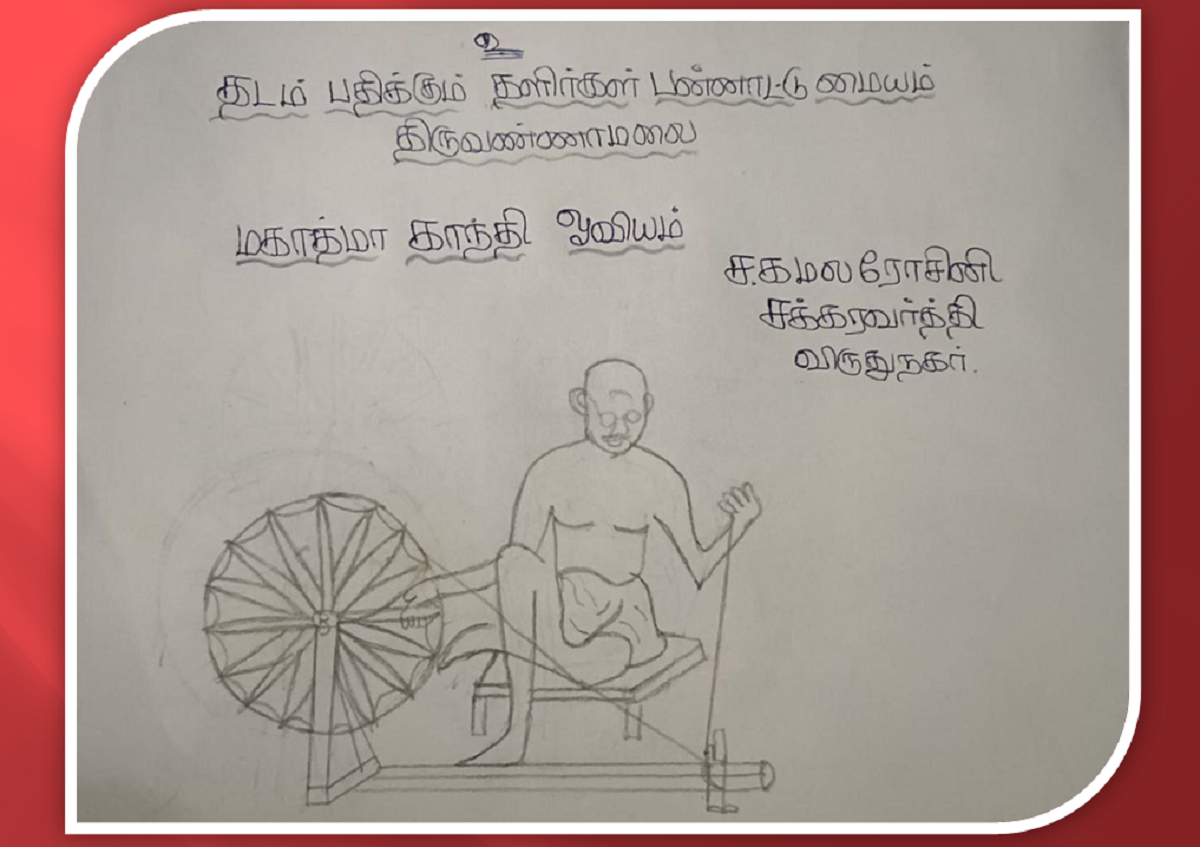 உ
தடம் பதிக்கும் தளிர்கள் பன்னாட்டு மையம்
திருவண்ணாமலை
மகாத்மா காந்தி ஓவியம்
ச.கமல ரோசினி
சக்கரவர்த்தி
விருதுநகர்.